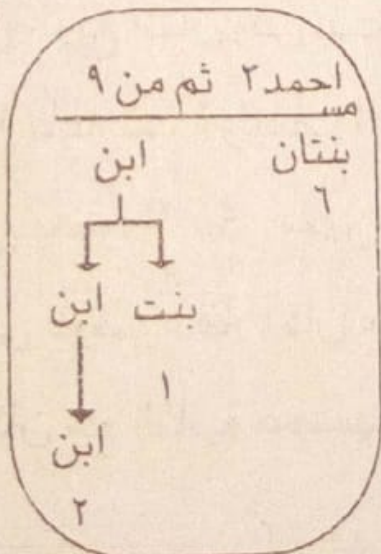 احمد ٣ ثم من ٩
مسـ
بنتان ابن
٦
بنت ابن
١
ابن
٢